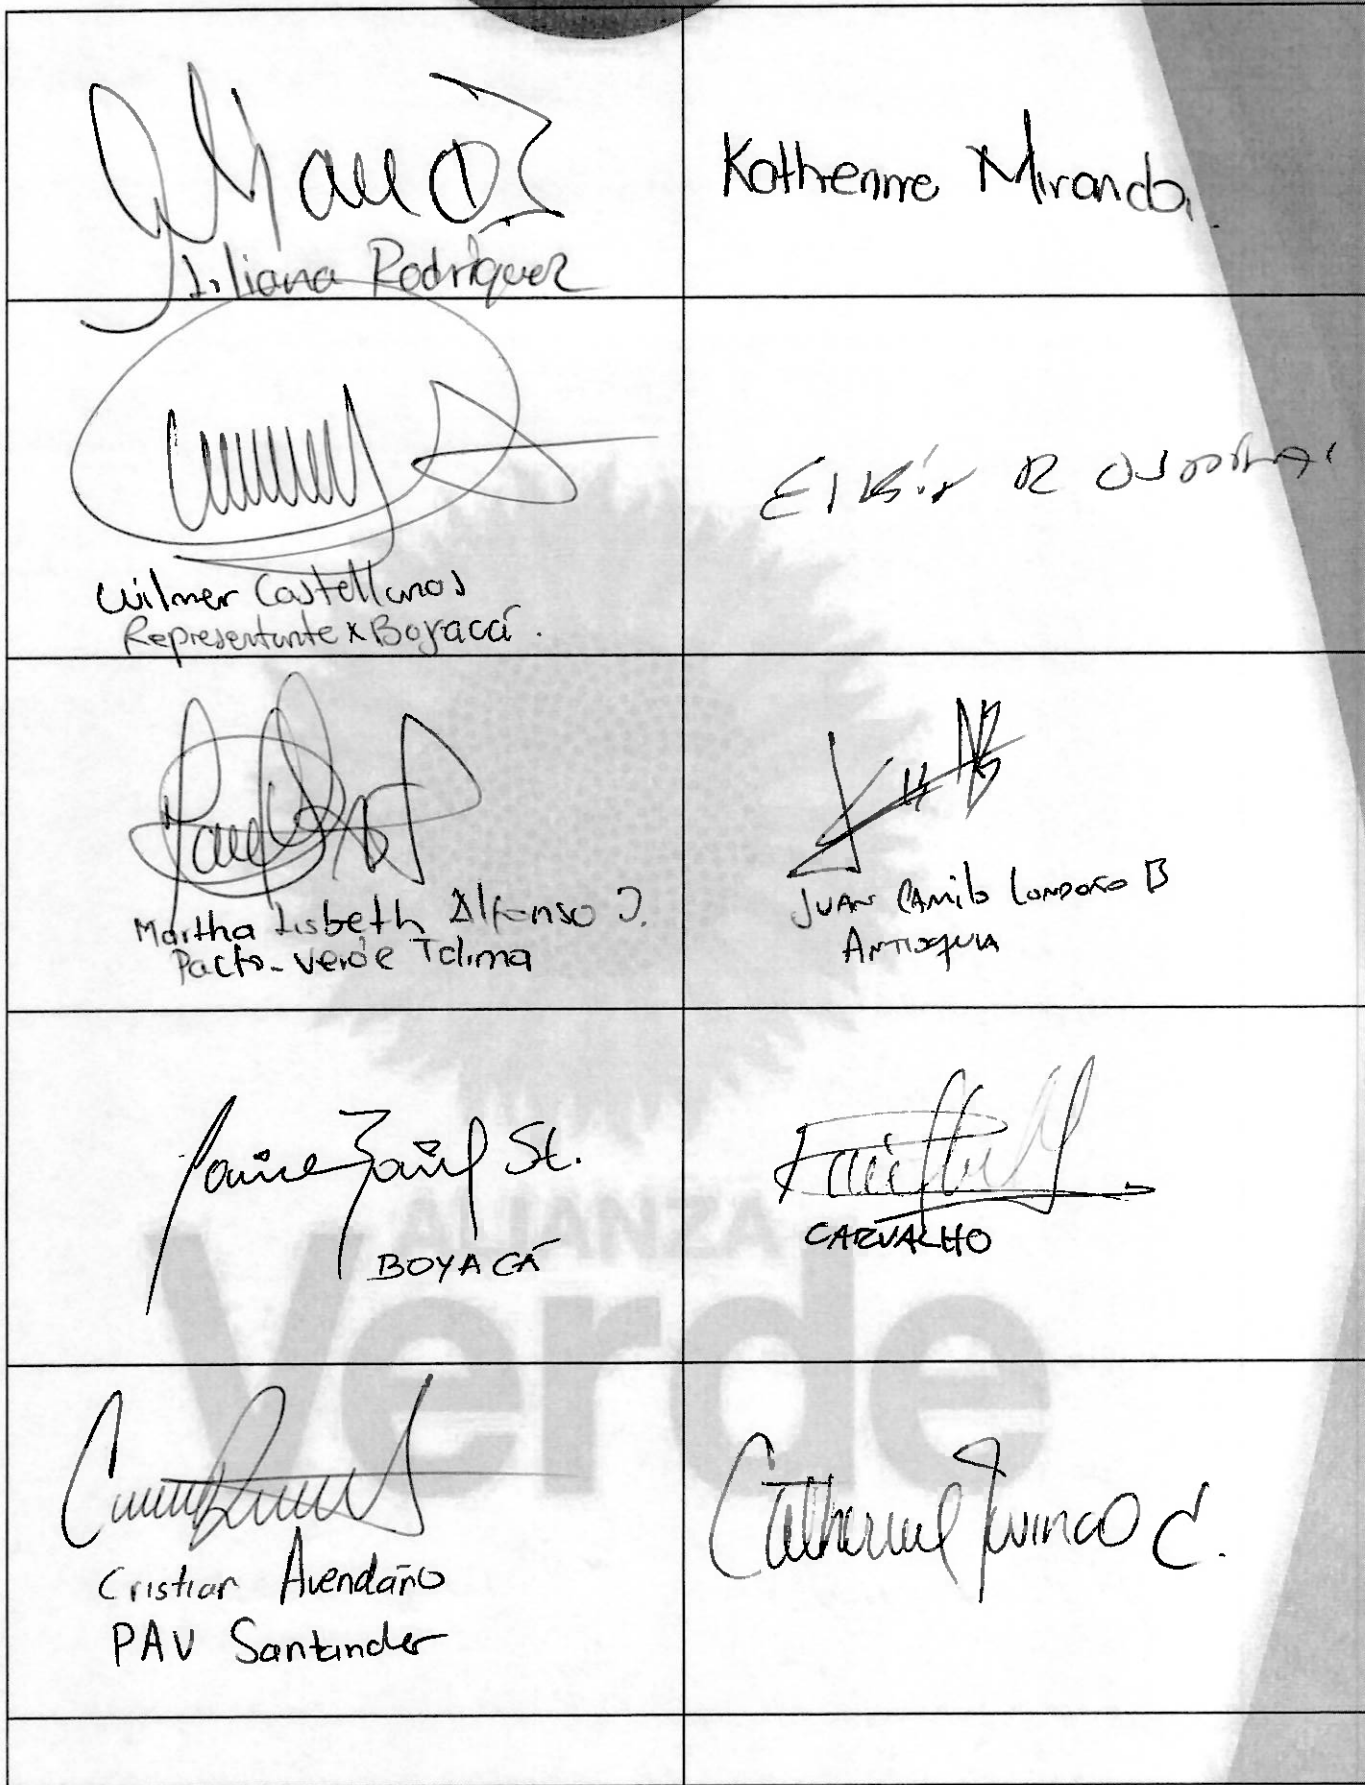 Liliana Rodríguez
Katherine Miranda
Wilmer Castellanos
Representante x Boyacá.
Elkin R Ospina
Martha Lisbeth Alfonso J.
Pacto-verde Tolima
JUAN CAMilo LONDOÑO B
ANTIOQUIA
BOYACÁ
CARVALHO
ALIANZA
Verde
Cristian Avendaño
PAV Santander
Catherine Juvinao C.